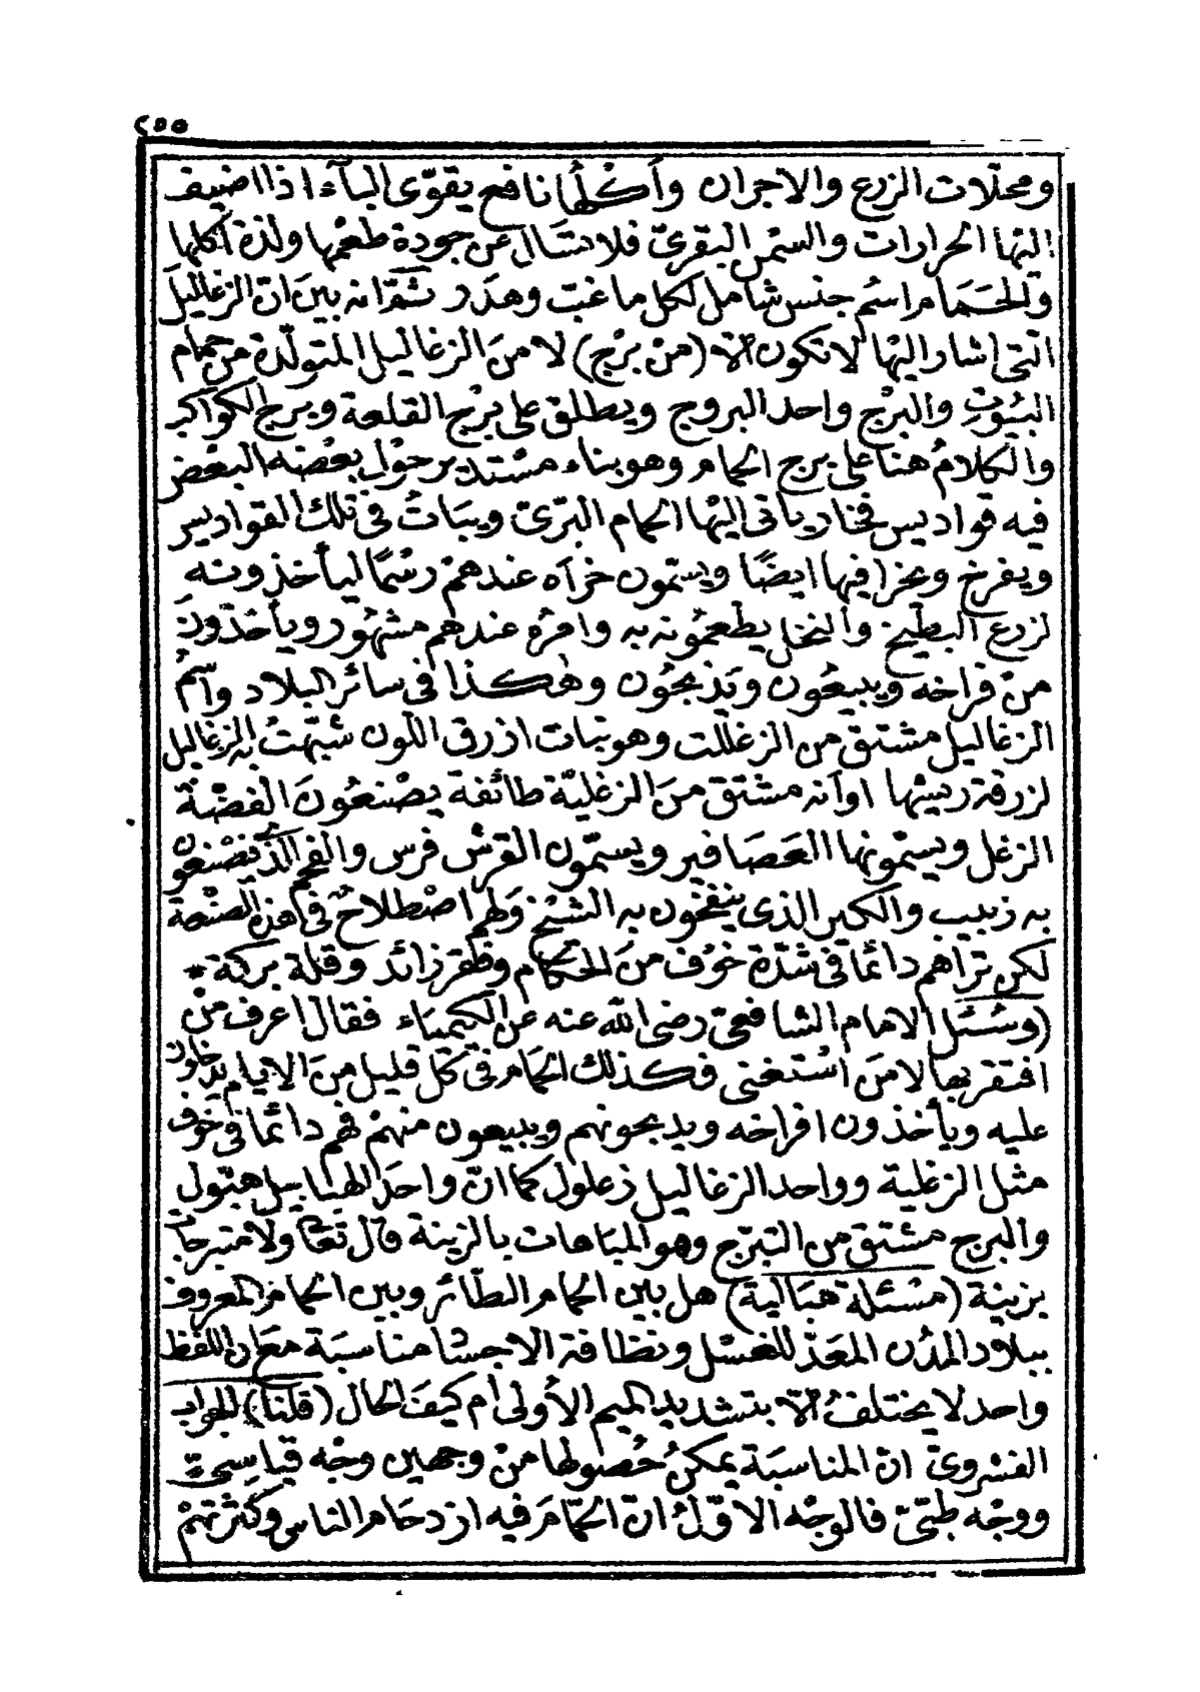 ٢٥٥
ومحلّات الزرع والاجران وأكلُها نافع يقوّى البآء اذا اضيف
اليها الحرارات والسّمن البقرىّ فلا تسَال عن جودة طعْمها ولذة أكلها
والحَمَام اسْم جنس شامل لكل ما غبّ وهدَر ثمّ انه بيَن انّ الزغاليل
الّتى اشار اليْها لا تكون الّا (منْ برْج) لا منَ الزغاليل المتولّدة من حمام
البيُوت والبرْج واحد البروج ويطلق على برْج القلعة وبرج الكواكب
والكلامُ هنا على برج الحمام وهو بناء مسْتدير حوْل بعْضه البعْض
فيه قواديس فخار ياتى اليْها الحمام البرّىّ ويبَاتُ فى تلك القواديس
ويفرخ ويخرا فيها ايضًا ويسمّون خرآه عندهمْ رسْمًا ليأخذونه
لزرع البطيخ والنخل يطعمُونه به وامْرهُ عندهم مشهُور ويأخذونَ
منْ فراخه ويبيعُون ويَذبحُون وهٰكذا فى سائر البلاد واسْمُ
الزغاليل مشتق من الزغللت وهو نبات ازرق اللّون شبّهتْ به الزغاليل
لزرقة ريشها اوانه مشتقّ منَ الزغلية طائفة يصْنعُونَ الفضّة
الزغل ويسمّونها العَصَافير ويسمّون القرْش فرس والفحم الّذى يصْنعُون
به زبيب والكير الذى ينفخُون به الشيْخ ولهم اصْطلاحٌ فى هذه الصنْعة
لكن تراهم دائمًا فى شدّة خوْف منَ الحكام وفقر زائد وقلة بركة *
(وسُئل الامام الشافعىّ رضى الله عنه عن الكيميَاء فقال اعرف منْ
افتقر بها لا منَ اسْتغنى فكذلك الحمام فى كلّ قليل منَ الايام يدخلون
عليه ويأخذون افراخه ويدبحونهم ويبيعون منهمْ فهم دائمًا فى خوف
مثل الزغلية وواحد الزغاليل زغلول كما انّ واحدَ الهبَابيل هبّول
والبرج مشتق من التبرّج وهو المبَاهات بالزينة قال تعَا ولا متبرجاٰت
بزينة (مسْئلة هبَالية) هل بيْن الحمام الطّائر وبين الحمام المعروف
ببلاد المدُن المعَدّ للغسْل ونظافة الاجسَام مناسبَة معَ ان اللفظ
واحد لا يختلفُ الّا بتشديد الميم الأولى أم كيفَ الحال (قلنا) الجواب
الفشروىّ انّ المناسبَة يمكنُ حُصُولها منْ وجهين وجْه قياسىّ
ووجْه طبّىّ فالوجْه الاوّلُ انّ الحمّامَ فيه ازدحام الناس وكثرتهمْ